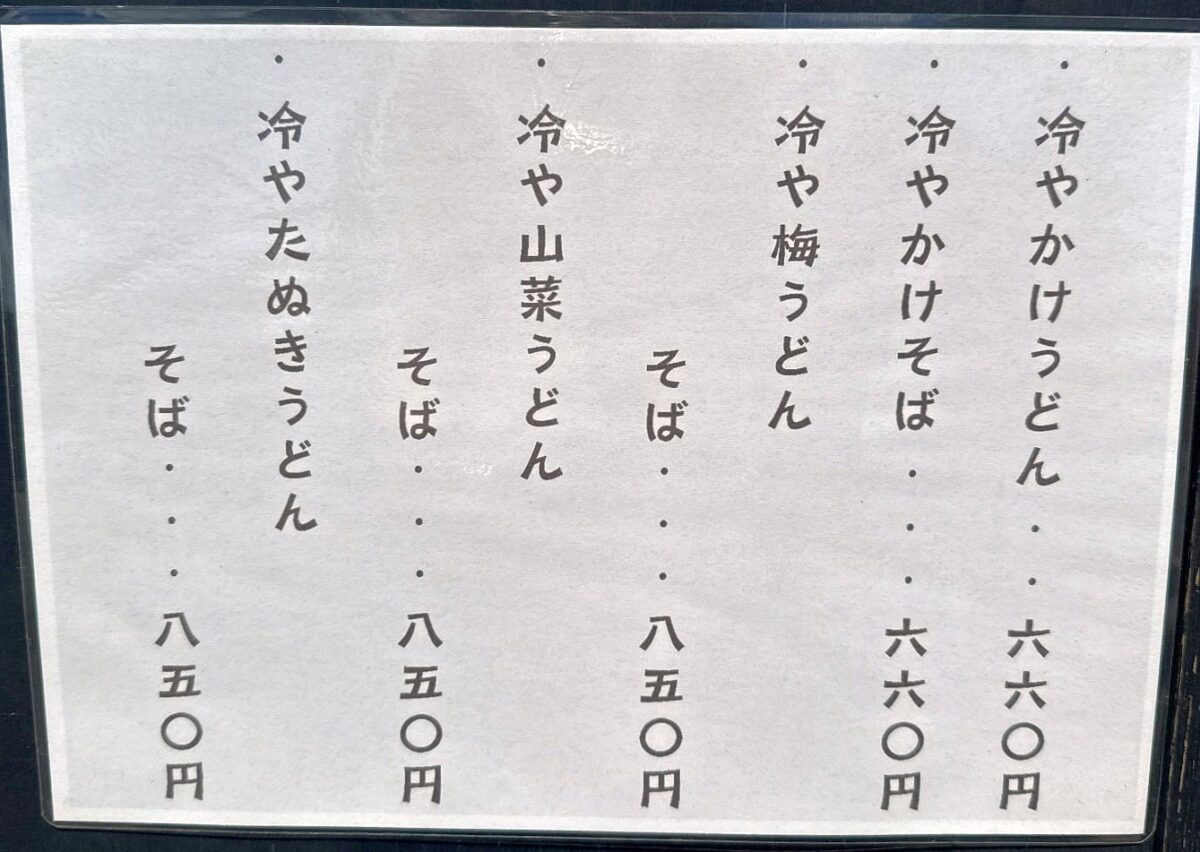 ・冷やかけうどん・・六六〇円
・冷やかけそば・・・六六〇円
・冷や梅うどん
そば・・・八五〇円
・冷や山菜うどん
そば・・・八五〇円
・冷やたぬきうどん
そば・・・八五〇円